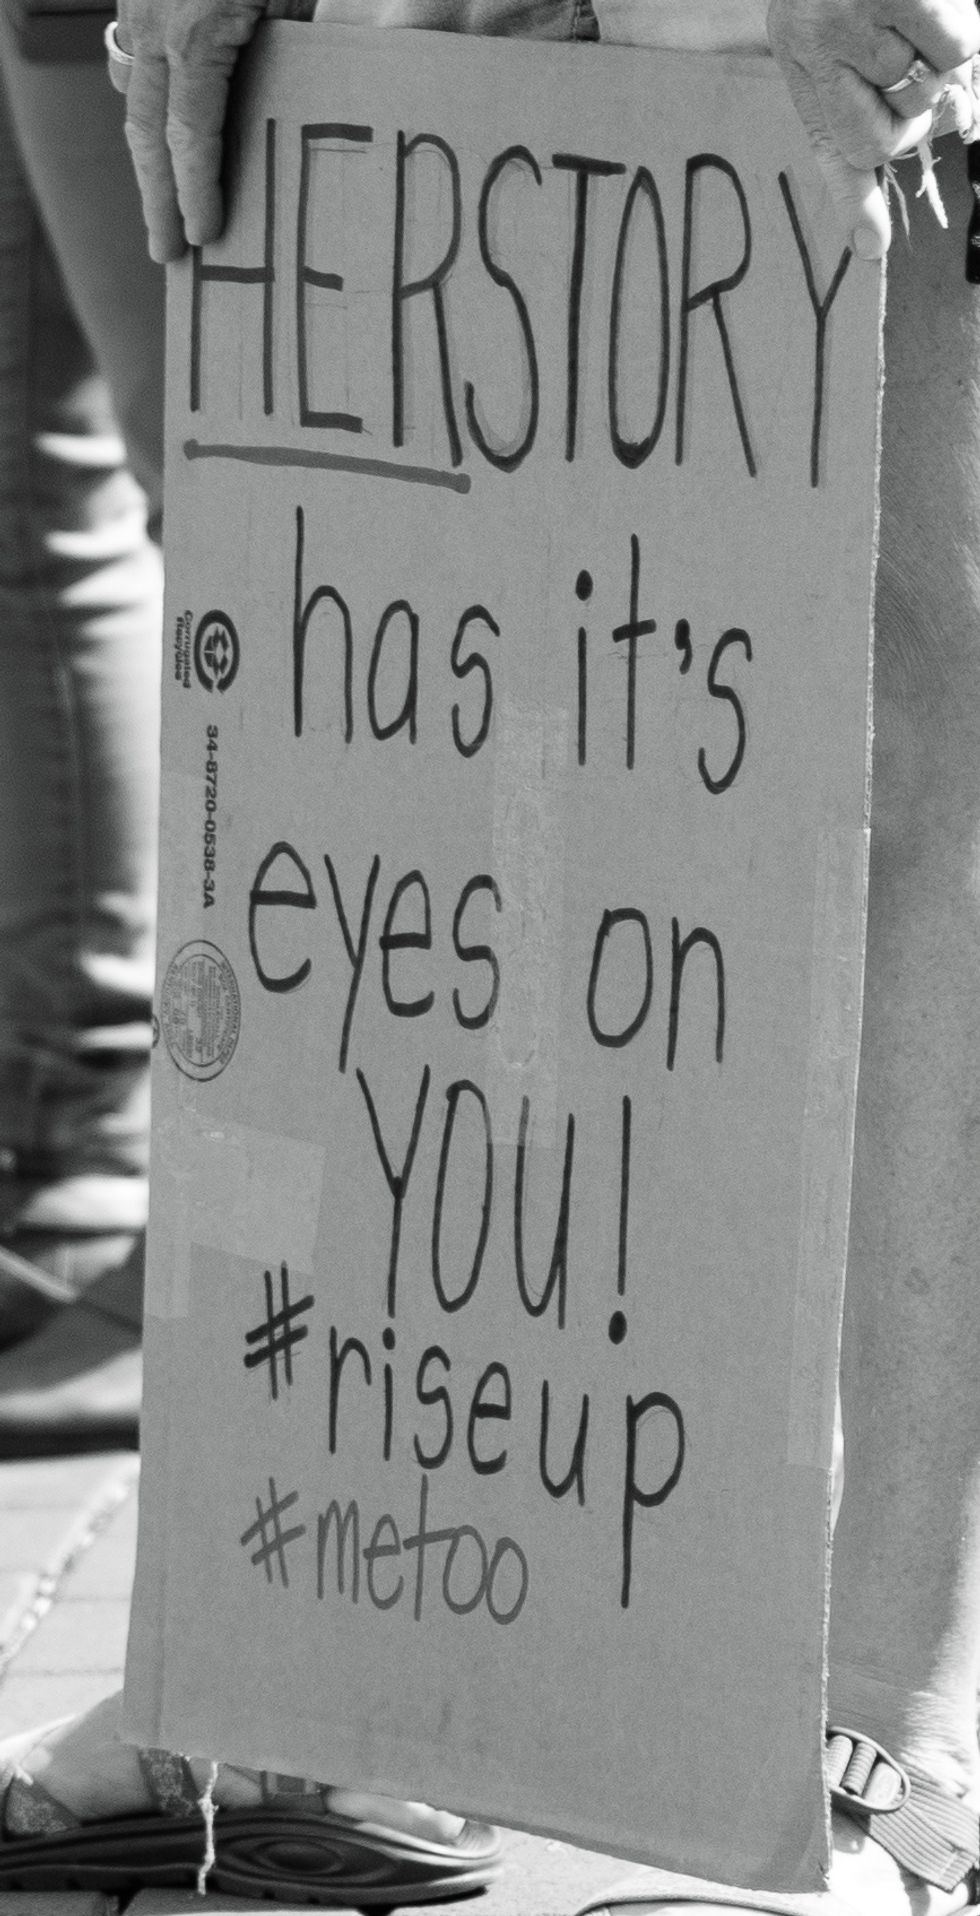 HERSTORY
has it's
eyes on
YOU!
#riseup
#metoo
Corrugated
Recycles
34-8720-0538-3A